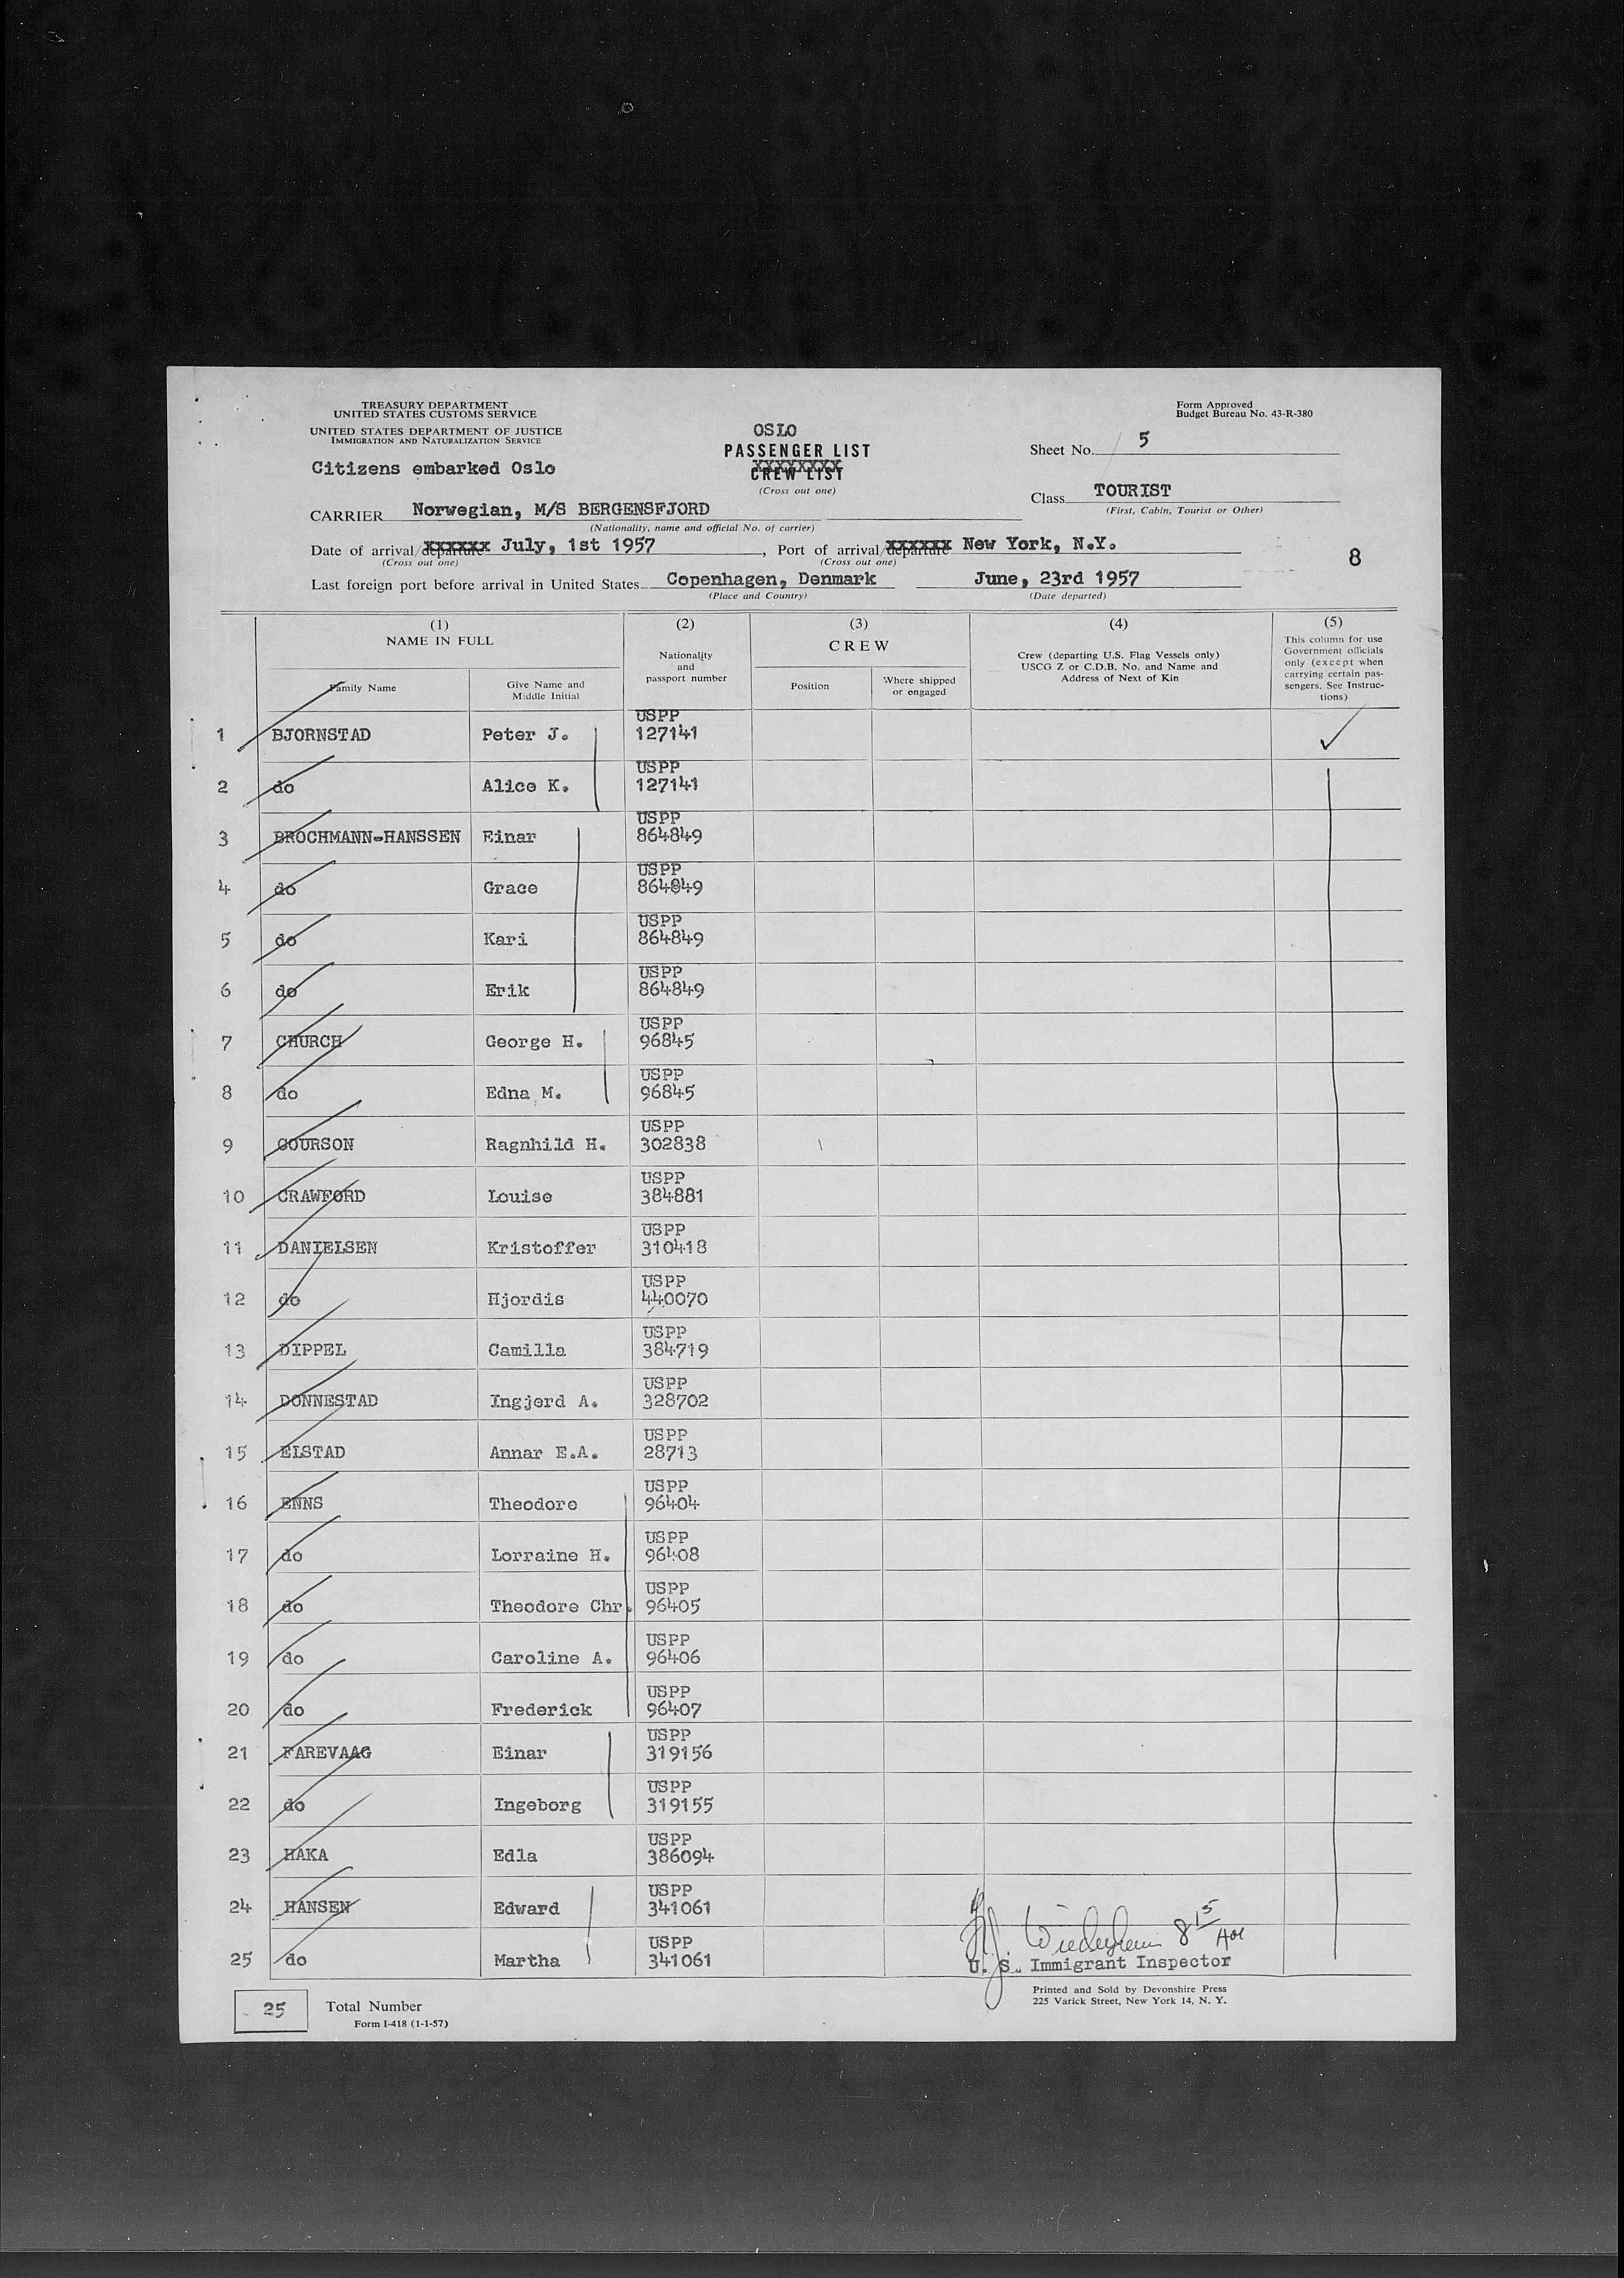 TREASURY DEPARTMENT
UNITED STATES CUSTOMS SERVICE
UNITED STATES DEPARTMENT OF JUSTICE
IMMIGRATION AND NATURALIZATION SERVICE
Citizens embarked Oslo
OSLO
PASSENGER LIST
CREW LIST
(Cross out one)
Form Approved
Budget Bureau No. 43-R-380
Sheet No. 5
Class TOURIST
(First, Cabin, Tourist or Other)
CARRIER Norwegian, M/S BERGENSFJORD
(Nationality, name and official No. of carrier)
Date of arrival/departure July, 1st 1957, Port of arrival/departure New York, N.Y.
(Cross out one) (Cross out one)
8
Last foreign port before arrival in United States Copenhagen, Denmark June, 23rd 1957
(Place and Country) (Date departed)
(1) (2) (3) (4) (5)
NAME IN FULL
Family Name
Give Name and
Middle Initial
Nationality
and
passport number
CREW
Position
Where shipped
or engaged
Crew (departing U.S. Flag Vessels only)
USCG Z or C.D.B. No. and Name and
Address of Next of Kin
This column for use
Government officials
only (except when
carrying certain pas-
sengers. See Instruc-
tions)
1 BJORNSTAD Peter J. USPP 127141
2 do Alice K. USPP 127141
3 BROCHMANN-HANSSEN Einar USPP 864849
4 do Grace USPP 864849
5 do Kari USPP 864849
6 do Erik USPP 864849
7 CHURCH George H. USPP 96845
8 do Edna M. USPP 96845
9 COURSON Ragnhild H. USPP 302838
10 CRAWFORD Louise USPP 384881
11 DANIELSEN Kristoffer USPP 310418
12 do Hjordis USPP 440070
13 DIPPEL Camilla USPP 384719
14 DONNESTAD Ingjerd A. USPP 328702
15 ELSTAD Annar E.A. USPP 28713
16 ENNS Theodore USPP 96404
17 do Lorraine H. USPP 96408
18 do Theodore Chr. USPP 96405
19 do Caroline A. USPP 96406
20 do Frederick USPP 96407
21 FAREVAAG Einar USPP 319156
22 do Ingeborg USPP 319155
23 HAKA Edla USPP 386094
24 HANSEN Edward USPP 341061
25 do Martha USPP 341061
8 15
U. S. Immigrant Inspector
Printed and Sold by Devonshire Press
225 Varick Street, New York 14, N. Y.
25 Total Number
Form I-418 (1-1-57)